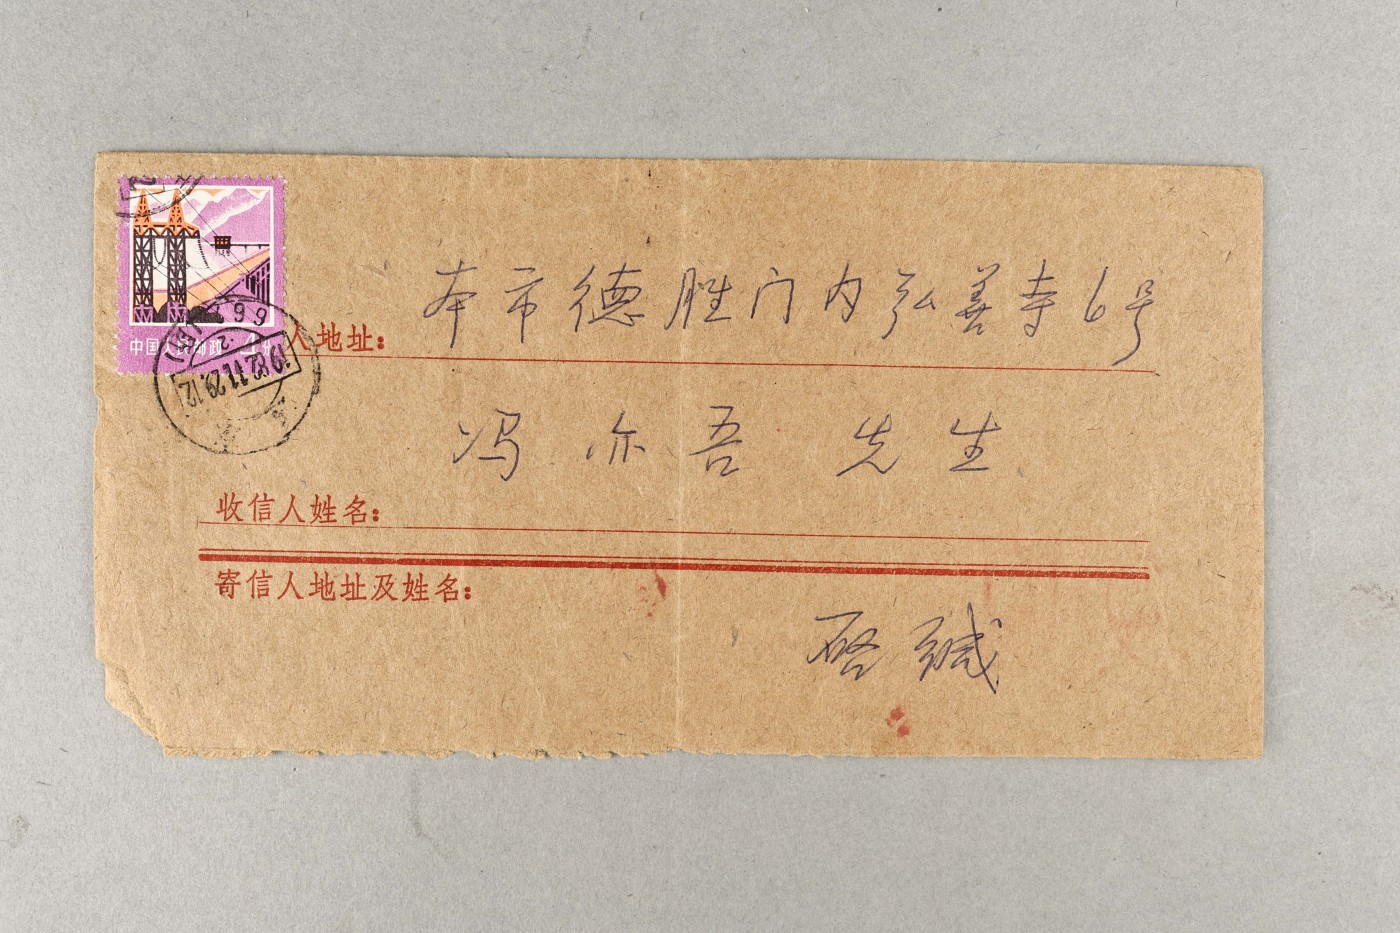 中国人民邮政 4分
人地址:
本市德胜门内弘善寺6号
收信人姓名:
冯亦吾 先生
寄信人地址及姓名:
启